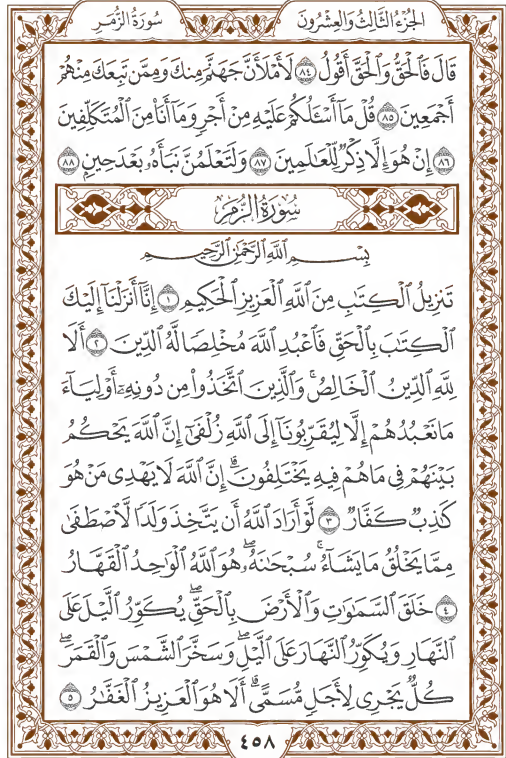 الجُزْءُ الثَّالِثُ وَالعِشْرُونَ
سُورَةُ الزُّمَر
قَالَ فَٱلْحَقُّ وَٱلْحَقَّ أَقُولُ ٨٤ لَأَمْلَأَنَّ جَهَنَّمَ مِنكَ وَمِمَّن تَبِعَكَ مِنْهُمْ
أَجْمَعِينَ ٨٥ قُلْ مَآ أَسْـَٔلُكُمْ عَلَيْهِ مِنْ أَجْرٍ وَمَآ أَنَا۠ مِنَ ٱلْمُتَكَلِّفِينَ
٨٦ إِنْ هُوَ إِلَّا ذِكْرٌ لِّلْعَـٰلَمِينَ ٨٧ وَلَتَعْلَمُنَّ نَبَأَهُۥ بَعْدَ حِينٍۭ ٨٨
سُورَةُ الزُّمَر
بِسْمِ ٱللَّهِ ٱلرَّحْمَـٰنِ ٱلرَّحِيمِ
تَنزِيلُ ٱلْكِتَـٰبِ مِنَ ٱللَّهِ ٱلْعَزِيزِ ٱلْحَكِيمِ ١ إِنَّآ أَنزَلْنَآ إِلَيْكَ
ٱلْكِتَـٰبَ بِٱلْحَقِّ فَٱعْبُدِ ٱللَّهَ مُخْلِصًا لَّهُ ٱلدِّينَ ٢ أَلَا
لِلَّهِ ٱلدِّينُ ٱلْخَالِصُ ۚ وَٱلَّذِينَ ٱتَّخَذُوا۟ مِن دُونِهِۦٓ أَوْلِيَآءَ
مَا نَعْبُدُهُمْ إِلَّا لِيُقَرِّبُونَآ إِلَى ٱللَّهِ زُلْفَىٰٓ إِنَّ ٱللَّهَ يَحْكُمُ
بَيْنَهُمْ فِى مَا هُمْ فِيهِ يَخْتَلِفُونَ ۗ إِنَّ ٱللَّهَ لَا يَهْدِى مَنْ هُوَ
كَـٰذِبٌ كَفَّارٌ ٣ لَّوْ أَرَادَ ٱللَّهُ أَن يَتَّخِذَ وَلَدًا لَّٱصْطَفَىٰ
مِمَّا يَخْلُقُ مَا يَشَآءُ ۚ سُبْحَـٰنَهُۥ ۖ هُوَ ٱللَّهُ ٱلْوَٰحِدُ ٱلْقَهَّارُ
٤ خَلَقَ ٱلسَّمَـٰوَٰتِ وَٱلْأَرْضَ بِٱلْحَقِّ ۖ يُكَوِّرُ ٱلَّيْلَ عَلَى
ٱلنَّهَارِ وَيُكَوِّرُ ٱلنَّهَارَ عَلَى ٱلَّيْلِ ۖ وَسَخَّرَ ٱلشَّمْسَ وَٱلْقَمَرَ ۖ
كُلٌّ يَجْرِى لِأَجَلٍ مُّسَمًّى ۗ أَلَا هُوَ ٱلْعَزِيزُ ٱلْغَفَّـٰرُ ٥
٤٥٨